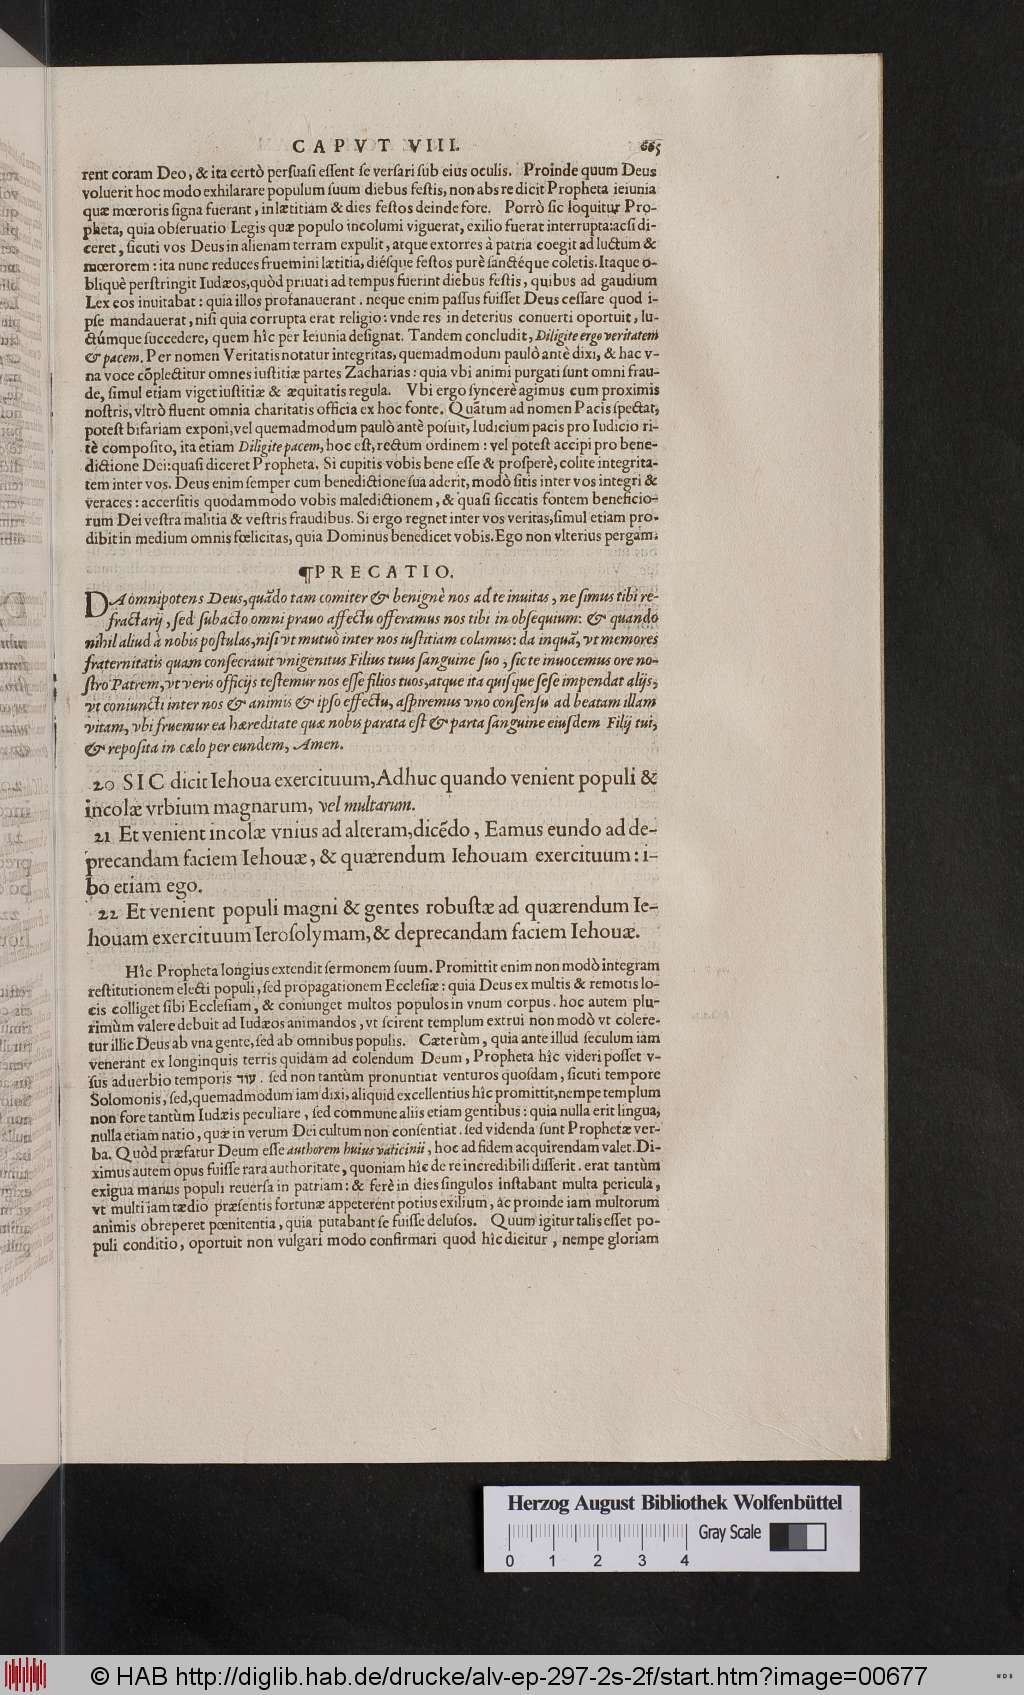 CAPVT VIII. 665
rent coram Deo, & ita certò persuasi essent se versari sub eius oculis. Proinde quum Deus
voluerit hoc modo exhilarare populum suum diebus festis, non abs re dicit Propheta ieiunia
quæ mœroris signa fuerant, in lætitiam & dies festos deinde fore. Porrò sic loquitur Pro-
pheta, quia obseruatio Legis quæ populo incolumi viguerat, exilio fuerat interrupta: acsi di-
ceret, sicuti vos Deus in alienam terram expulit, atque extorres à patria coegit ad luctum &
mœrorem: ita nunc reduces fruemini lætitia, diésque festos purè sanctéque coletis. Itaque o-
bliquè perstringit Iudæos, quòd priuati ad tempus fuerint diebus festis, quibus ad gaudium
Lex eos inuitabat: quia illos profanauerant. neque enim passus fuisset Deus cessare quod i-
pse mandauerat, nisi quia corrupta erat religio: vnde res in deterius conuerti oportuit, lu-
ctúmque succedere, quem hîc per Ieiunia designat. Tandem concludit, Diligite ergo veritatem
& pacem. Per nomen Veritatis notatur integritas, quemadmodum paulò antè dixi, & hac v-
na voce cōplectitur omnes iustitiæ partes Zacharias: quia vbi animi purgati sunt omni frau-
de, simul etiam viget iustitiæ & æquitatis regula. Vbi ergo syncerè agimus cum proximis
nostris, vltrò fluent omnia charitatis officia ex hoc fonte. Quātum ad nomen Pacis spectat,
potest bifariam exponi, vel quemadmodum paulò antè posuit, Iudicium pacis pro Iudicio ri-
tè composito, ita etiam Diligite pacem, hoc est, rectum ordinem: vel potest accipi pro bene-
dictione Dei: quasi diceret Propheta, Si cupitis vobis bene esse & prosperè, colite integrita-
tem inter vos. Deus enim semper cum benedictione sua aderit, modò sitis inter vos integri &
veraces: accersitis quodammodo vobis maledictionem, & quasi siccatis fontem beneficio-
rum Dei vestra malitia & vestris fraudibus. Si ergo regnet inter vos veritas, simul etiam pro-
dibit in medium omnis fœlicitas, quia Dominus benedicet vobis. Ego non vlterius pergam.
¶PRECATIO.
DA omnipotens Deus, quādo tam comiter & benignè nos ad te inuitas, ne simus tibi re-
fractarij, sed subacto omni prauo affectu offeramus nos tibi in obsequium: & quando
nihil aliud à nobis postulas, nisi vt mutuò inter nos iustitiam colamus: da inquā, vt memores
fraternitatis quam consecrauit vnigenitus Filius tuus sanguine suo, sic te inuocemus ore no-
stro Patrem, vt veris officijs testemur nos esse filios tuos, atque ita quisque sese impendat alijs,
vt coniuncti inter nos & animis & ipso effectu, aspiremus vno consensu ad beatam illam
vitam, vbi fruemur ea hæreditate quæ nobis parata est & parta sanguine eiusdem Filij tui,
& reposita in cælo per eundem, Amen.
20 SIC dicit Iehoua exercituum, Adhuc quando venient populi &
incolæ vrbium magnarum, vel multarum.
21 Et venient incolæ vnius ad alteram, dicēdo, Eamus eundo ad de-
precandam faciem Iehouæ, & quærendum Iehouam exercituum: i-
bo etiam ego.
22 Et venient populi magni & gentes robustæ ad quærendum Ie-
houam exercituum Ierosolymam, & deprecandam faciem Iehouæ.
Hîc Propheta longius extendit sermonem suum. Promittit enim non modò integram
restitutionem electi populi, sed propagationem Ecclesiæ: quia Deus ex multis & remotis lo-
cis colliget sibi Ecclesiam, & coniunget multos populos in vnum corpus. hoc autem plu-
rimùm valere debuit ad Iudæos animandos, vt scirent templum extrui non modò vt colere-
tur illic Deus ab vna gente, sed ab omnibus populis. Cæterùm, quia ante illud seculum iam
venerant ex longinquis terris quidam ad colendum Deum, Propheta hîc videri posset v-
sus aduerbio temporis עוד. sed non tantùm pronuntiat venturos quosdam, sicuti tempore
Solomonis, sed, quemadmodum iam dixi, aliquid excellentius hîc promittit, nempe templum
non fore tantùm Iudæis peculiare, sed commune aliis etiam gentibus: quia nulla erit lingua,
nulla etiam natio, quæ in verum Dei cultum non consentiat. sed videnda sunt Prophetæ ver-
ba. Quòd præfatur Deum esse authorem huius vaticinii, hoc ad fidem acquirendam valet. Di-
ximus autem opus fuisse rara authoritate, quoniam hîc de re incredibili disserit. erat tantùm
exigua manus populi reuersa in patriam: & ferè in dies singulos instabant multa pericula,
vt multi iam tædio præsentis fortunæ appeterent potius exilium, ac proinde iam multorum
animis obreperet pœnitentia, quia putabant se fuisse delusos. Quum igitur talis esset po-
puli conditio, oportuit non vulgari modo confirmari quod hîc dicitur, nempe gloriam
Herzog August Bibliothek Wolfenbüttel
Gray Scale
0 1 2 3 4
© HAB http://diglib.hab.de/drucke/alv-ep-297-2s-2f/start.htm?image=00677